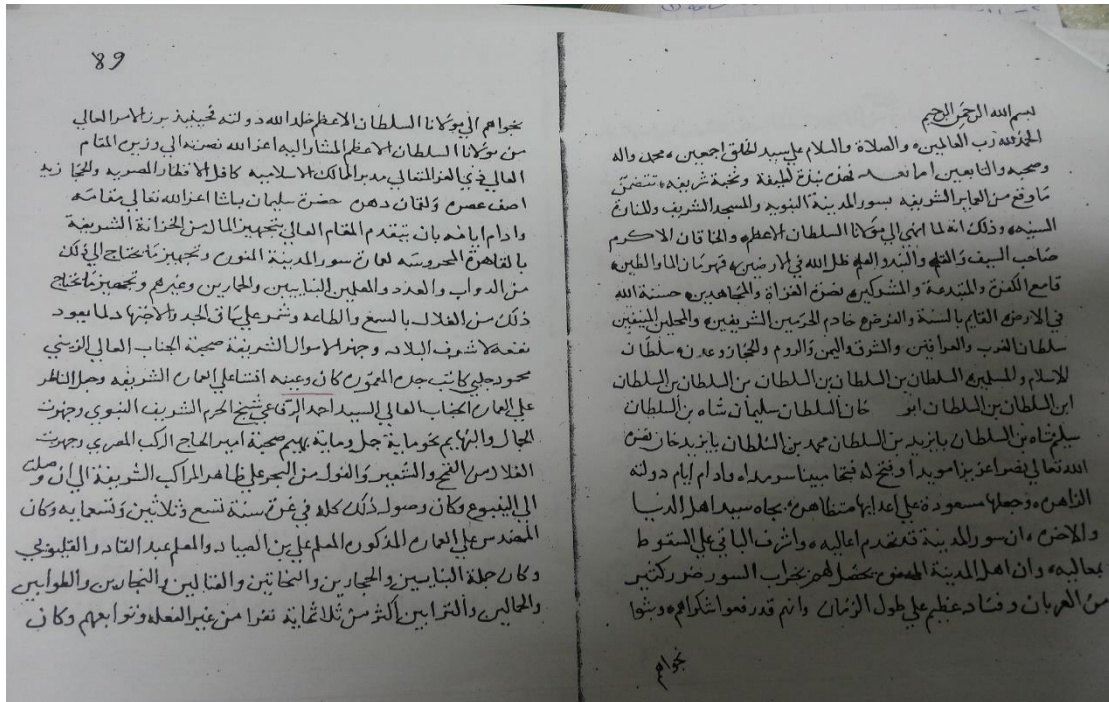 بسم الله الرحمن الرحيم
الحمد لله رب العالمين والصلاة والسلام علي سيد الخلق اجمعين محمد واله
وصحبه والتابعين اما بعد فهذه نبذة لطيفة ونخبة شريفة تتضمن
ما وقع من العماير الشريفه بسور المدينة النبويه والمسجد الشريف والمنارة
السنيه وذلك انه لما انهي الي مولانا السلطان الاعظم والخاقان الاكرم
صاحب السيف والقلم والبند والعلم ظل الله في الارضين قهرمان الما والطين
قامع الكفرة والمبتدعة والمشركين نصرة الغزاة والمجاهدين حسنة الله
في الارض القايم بالسنة والفرض خادم الحرمين الشريفين والمحلين المنيفين
سلطان الغرب والعراقين والشرق واليمن والروم والحجاز وعدن سلطان
الاسلام والمسلمين السلطان بن السلطان بن السلطان بن السلطان بن السلطان
ابن السلطان بن السلطان ابو خان السلطان سليمان شاه بن السلطان
سليم شاه بن السلطان بايزيد بن السلطان محمد بن السلطان بايزيد خان نصره
الله تعالي نصرا عزيزا مويدا وفتح له فتحا مبينا سرمدا وادام ايام دولته
الزاهره وجعلها مسعودة علي اعدايها متظاهره بجاه سيد اهل الدنيا
والاخره ان سور المدينة قد تهدم اعاليه واشرف الباقي علي السقوط
بمعاليه وان اهل المدينة يحصل لهم بخراب السور ضرر كثير
من العربان وفساد عظيم علي طول الزمان وانهم قد رفعوا شكواهم وبثوا
نجواهم
89
نجواهم الي مولانا السلطان الاعظم خلد الله دولته فحينيذ برز الامر العالي
من مولانا السلطان الاعظم المشار اليه اعز الله نصرته الي وزير المقام
العالي ذي العز المتعالي مدبر الممالك الاسلاميه كافل الاقطار المصريه والحجازيه
اصف عصره ولقمان دهره حضرة سليمان باشا اعز الله تعالي مقامه
وادام ايامه بان يتقدم المقام العالي بتجهيز المال من الخزانة الشريفة
بالقاهرة المحروسه لعمارة سور المدينة المنوره وتجهيز ما يحتاج الي ذلك
من الدواب والعدد والمعلمين البنايين والحجارين وغيرهم وتجهيز ما يحتاج
ذلك من الغلال بالسمع والطاعه وشمر علي ساق الجد والاجتهاد لما يعود
نفعه لاشرف البلاد وجهز الاموال الشريفة صحبة الجناب العالي الزيني
محمود جلبي كاتب جده المعموره كان وعينه علي العماره الشريفه وجعل الناظر
علي العماره الجناب العالي السيد احمد الرفاعي شيخ الحرم الشريف النبوي وجهزت
الجمال والبهايم نحو ماية جمل وماية بهيم صحبة امير الحاج الركب المصري وجهزت
الغلال من القمح والشعير والفول من البحر علي ظاهر المراكب الشريفة الي ان وصلت
الي الينبوع وكان وصول ذلك كله في غرة سنة تسع وثلاثين وتسعمايه وكان
المهندس علي العماره المذكوره المعلم علي بن الصياد والمعلم عبد القادر القليوبي
وكان جملة البنايين والحجارين والنحاتين والعتالين والنجارين والطوابين
والحمالين والترابين اكثر من ثلاثماية نفرا من غير الفعله وتوابعهم وكان